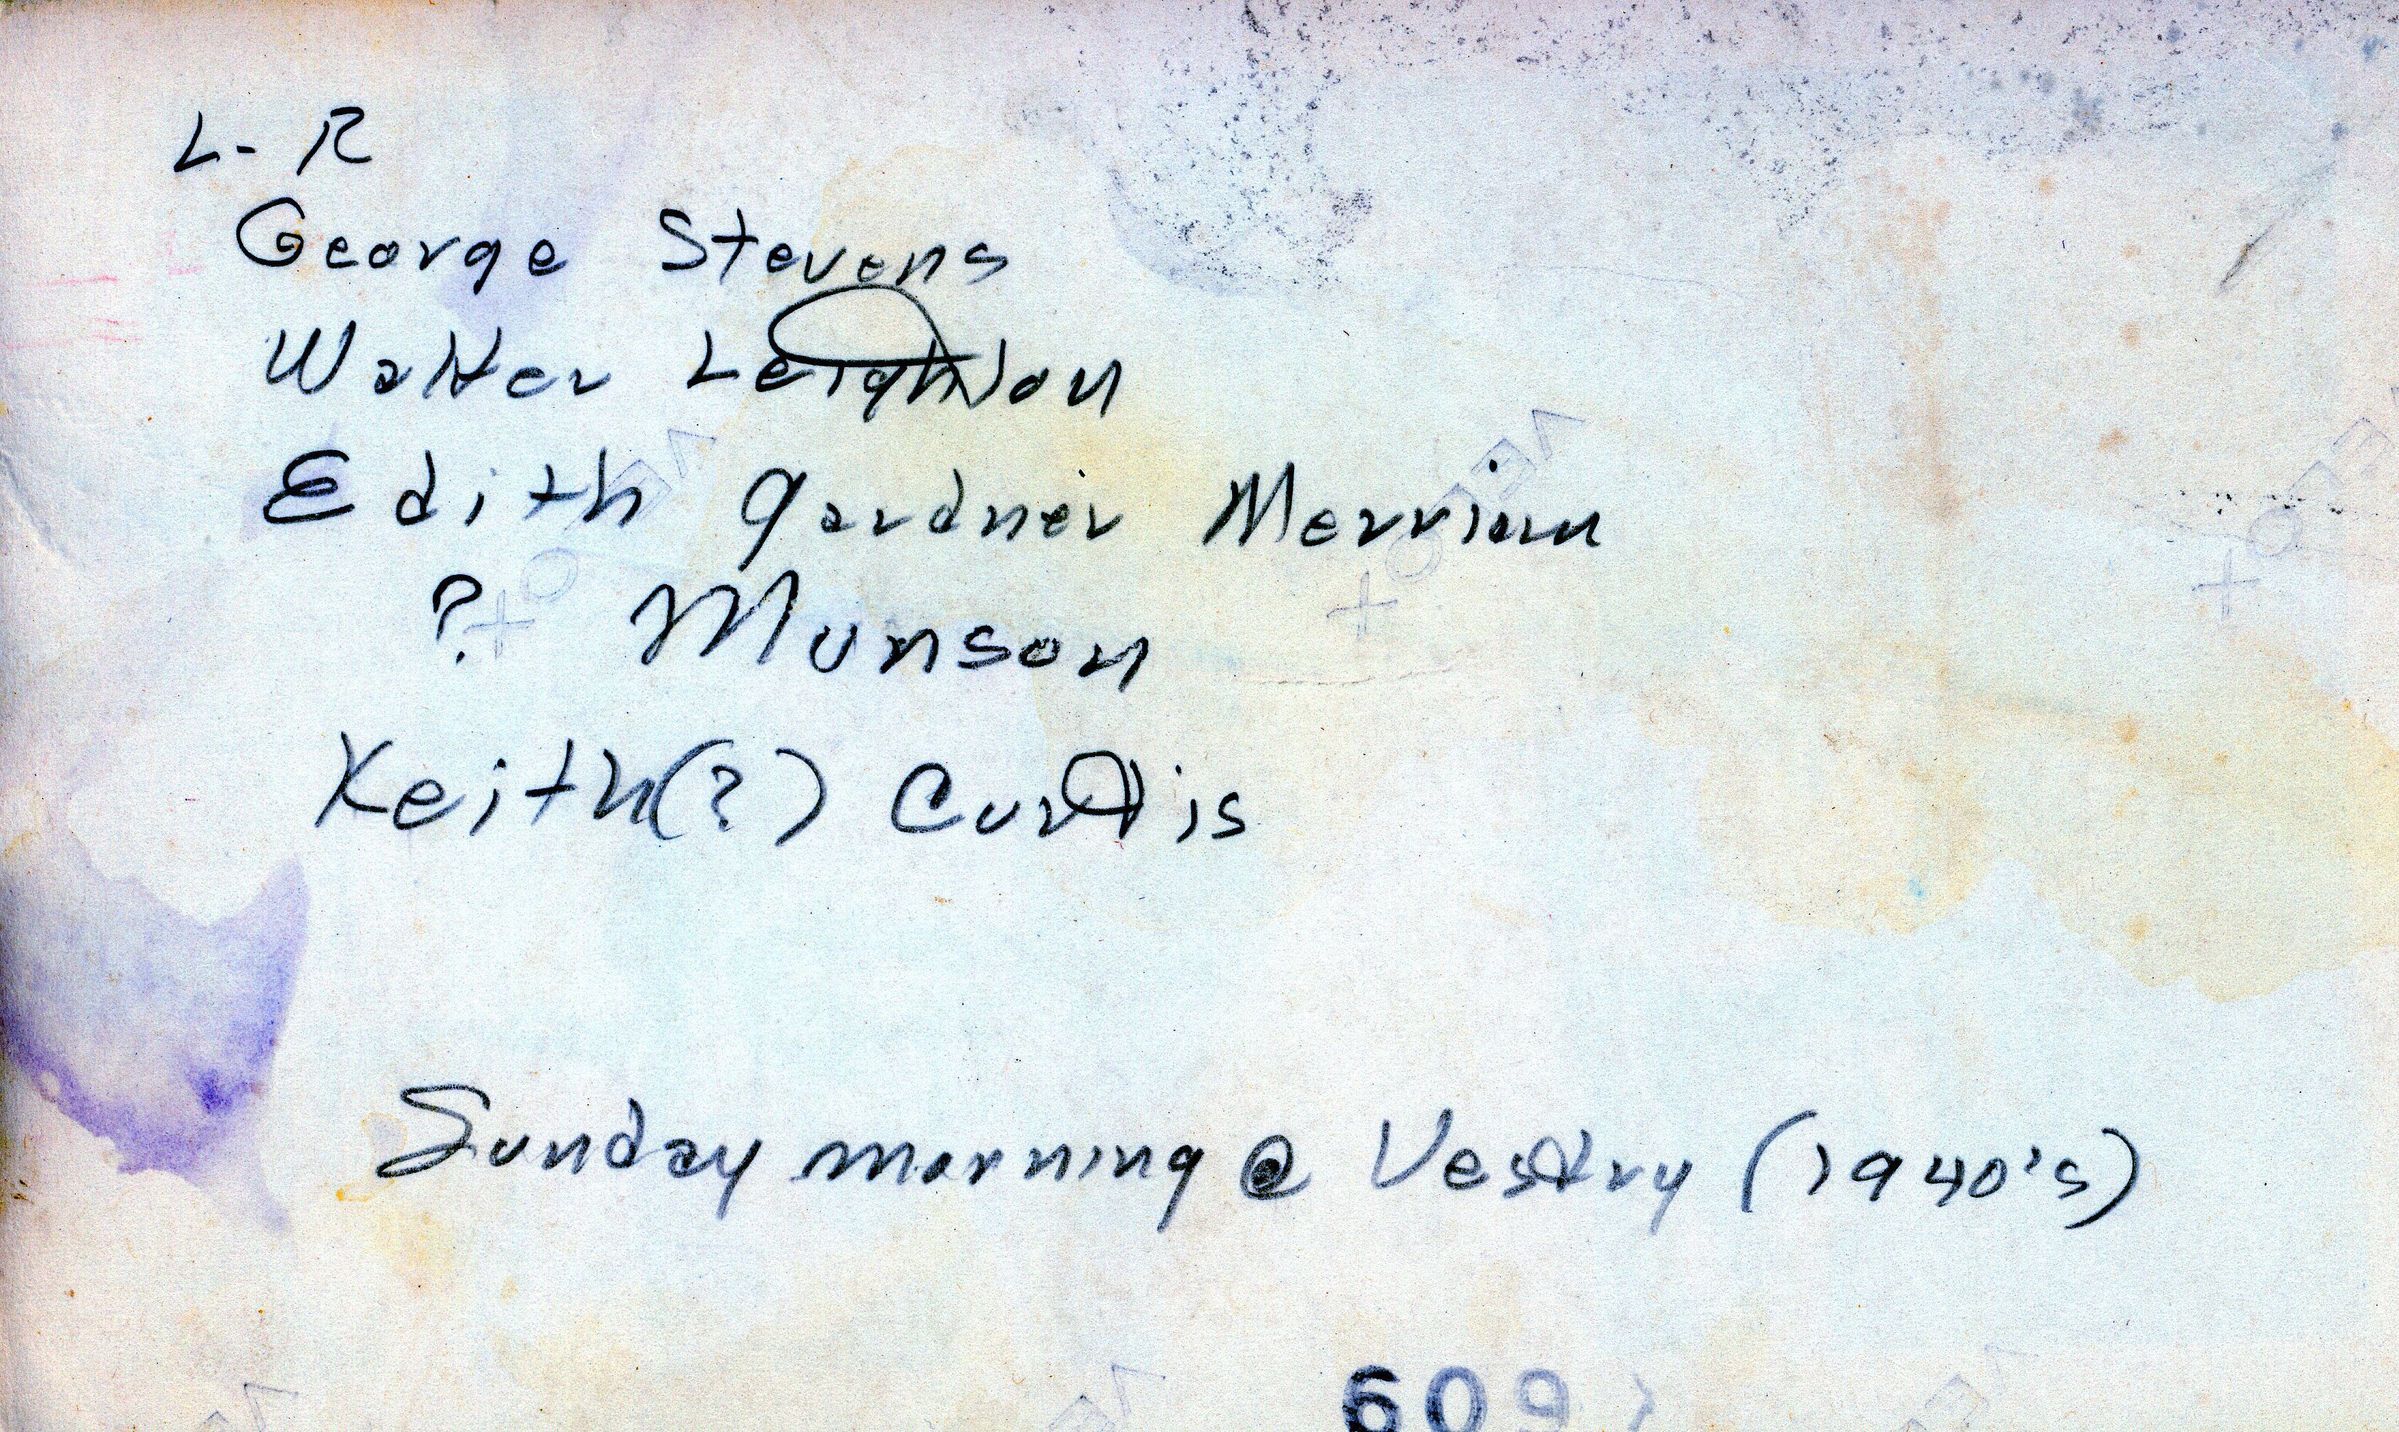 L-R
George Stevens
Walter Leighton
Edith Gardner Merriam
? Munson
Keith(?) Curtis
Sunday morning @ Vestry (1940's)
609